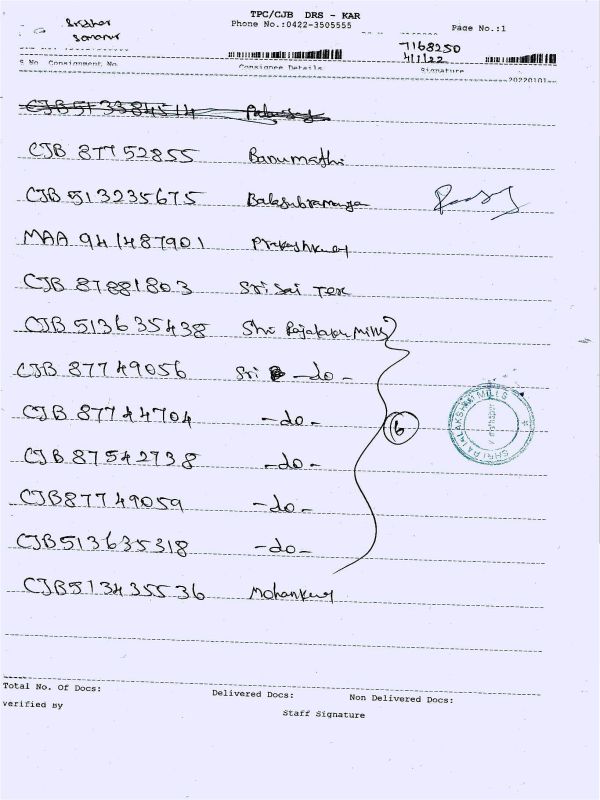 TPC/CJB DRS - KAR
Sridhar
Phone No.:0422-3505555
Page No.:1
7168250
4/1/22
S No Consignment No
Consignee Details
Signature
20220101
CJB513384514
CJB 87752855 Banumathi
CJB 513235675 Balasubramanya
MAA 941487901 Prakashkumar
CJB 87881803 Sri Sai Tex
CJB 513635438 Shri Rajalakshmi Mills
CJB 87749056 Sri -do-
CJB 87744704 -do-
CJB 87542738 -do-
CJB87749059 -do-
CJB513635318 -do-
6
CJB513435536 Mohankumar
Total No. Of Docs:
Delivered Docs:
Non Delivered Docs:
verified By
Staff Signature